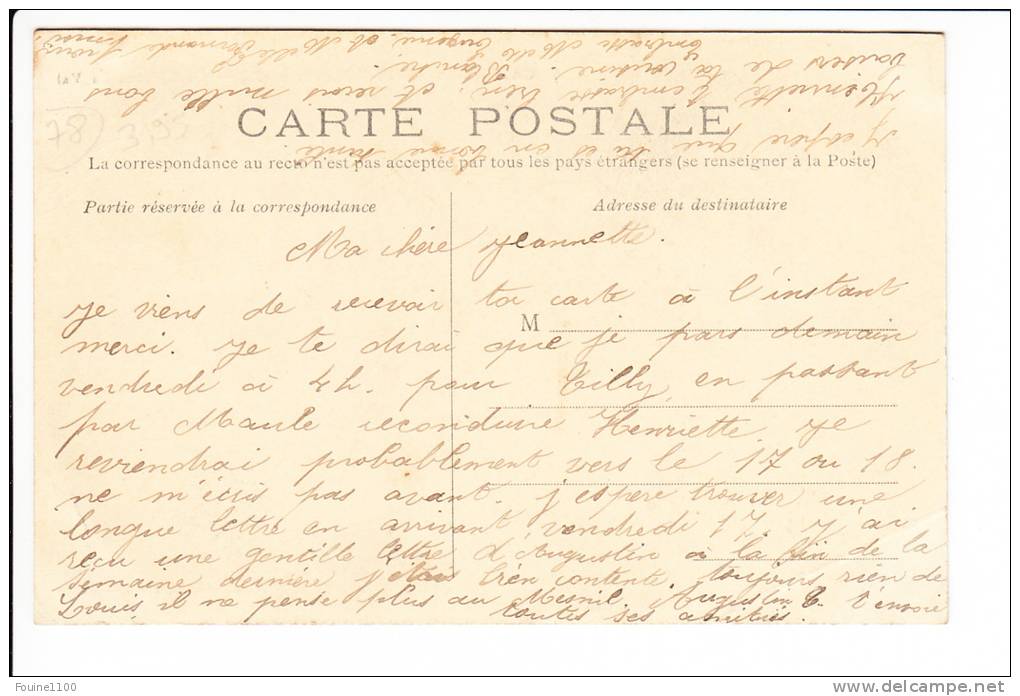 CARTE POSTALE
La correspondance au recto n'est pas acceptée par tous les pays étrangers (se renseigner à la Poste)
Partie réservée à la correspondance
Adresse du destinataire
M
Ma chère Jeannette.
Je viens de recevoir ta carte à l'instant
merci. Je te dirai que je pars demain
vendredi à 4h. pour Tilly en passant
par Maule reconduire Henriette. Je
reviendrai probablement vers le 17 ou 18.
ne m'écris pas avant. j'espere trouver une
longue lettre en arrivant vendredi 17. J'ai
reçu une gentille lettre d'Augustin à la fin de la
semaine dernière j'étais bien contente. toujours rien de
Louis, il ne pense plus au Mesnil. Augustin t'envoie
toutes ses amitiés.
J'espere que tu es en bonne santé
Henriette t'embrasse bien. et reçois mille bons
baisers de ta cousine. Blanche
embrasse Melle Eugenie. et Melle Fernande pour
moi.
78
3,95
Foune1100
www.delcampe.net